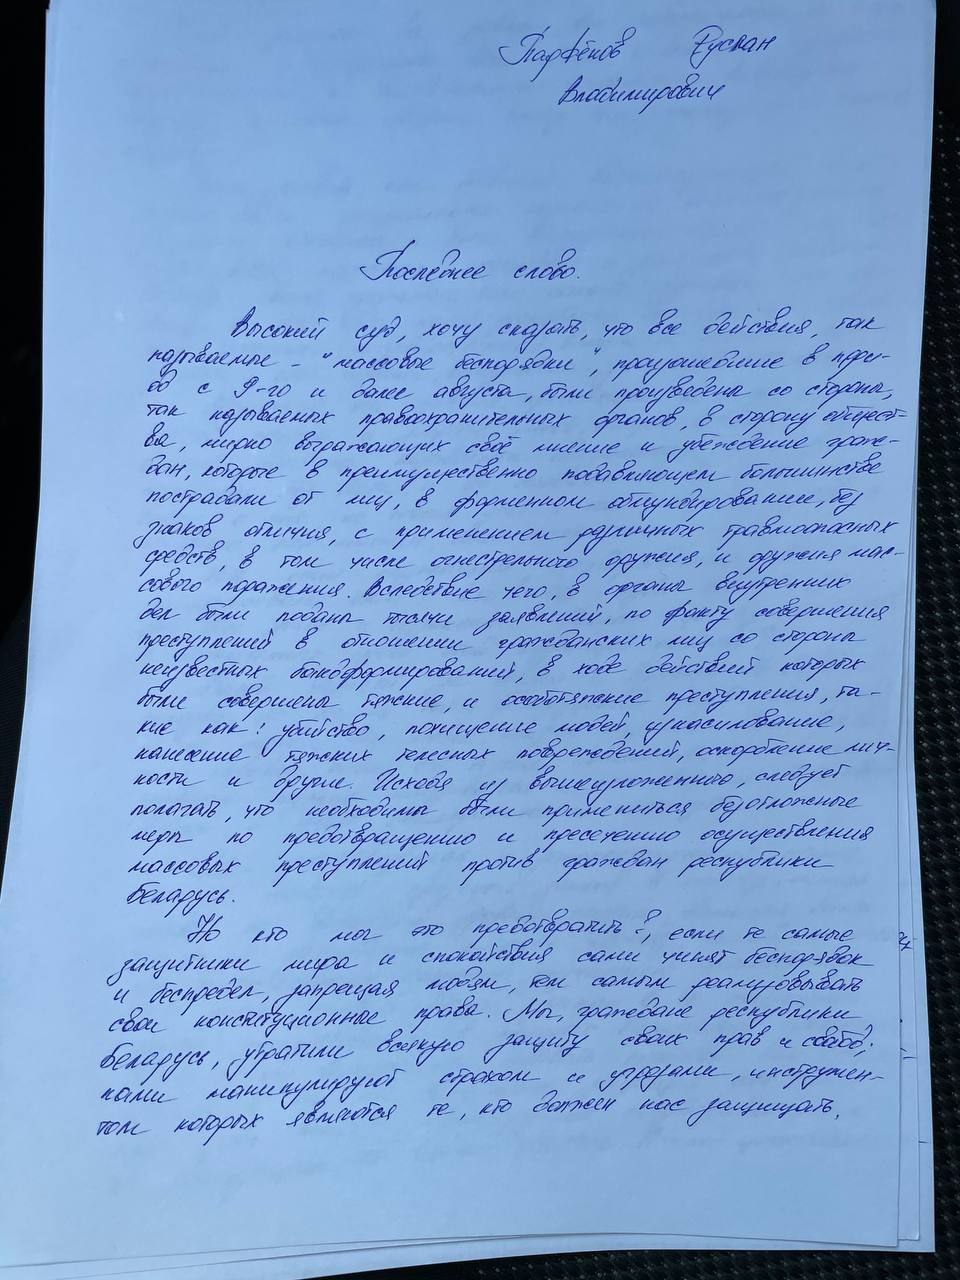 Парфёнов Руслан
Владимирович
Последнее слово.
Высокий суд, хочу сказать, что все действия, так
называемые - "массовые беспорядки", произошедшие в пери-
од с 9-го и далее августа, были произведены со стороны,
так называемых правоохранительных органов, в сторону общест
ва, мирно выражающих своё мнение и убеждение граж-
дан, которые в преимущественно подавляющем большинстве
пострадали от лиц, в форменном обмундировании, без
знаков отличия, с применением различных травмоопасных
средств, в том числе огнестрельного оружия, и оружия мас-
сового поражения. Вследствие чего, в органы внутренних
дел были поданы тысячи заявлений, по факту совершения
преступлений в отношении гражданских лиц со стороны
неизвестных бандформирований, в ходе действий которых
были совершены тяжкие, и особотяжкие преступления, та-
кие как: убийство, похищение людей, изнасилование,
нанесение тяжких телесных повреждений, оскорбление лич-
ности и другие. Исходя из вышеизложенного, следует
полагать, что необходимы были примениться безотложные
меры по предотвращению и пресечению осуществления
массовых преступлений против граждан республики
Беларусь.
Но кто мог это предотвратить?, если те самые
защитники мира и спокойствия сами чинят беспорядок
и беспредел, запрещая людям, тем самым реализовывать
свои конституционные права. Мы, граждане республики
Беларусь, утратили всякую защиту своих прав и свобод,
нами манипулируют страхом и угрозами, инструмен-
том которых являются те, кто должен нас защищать.